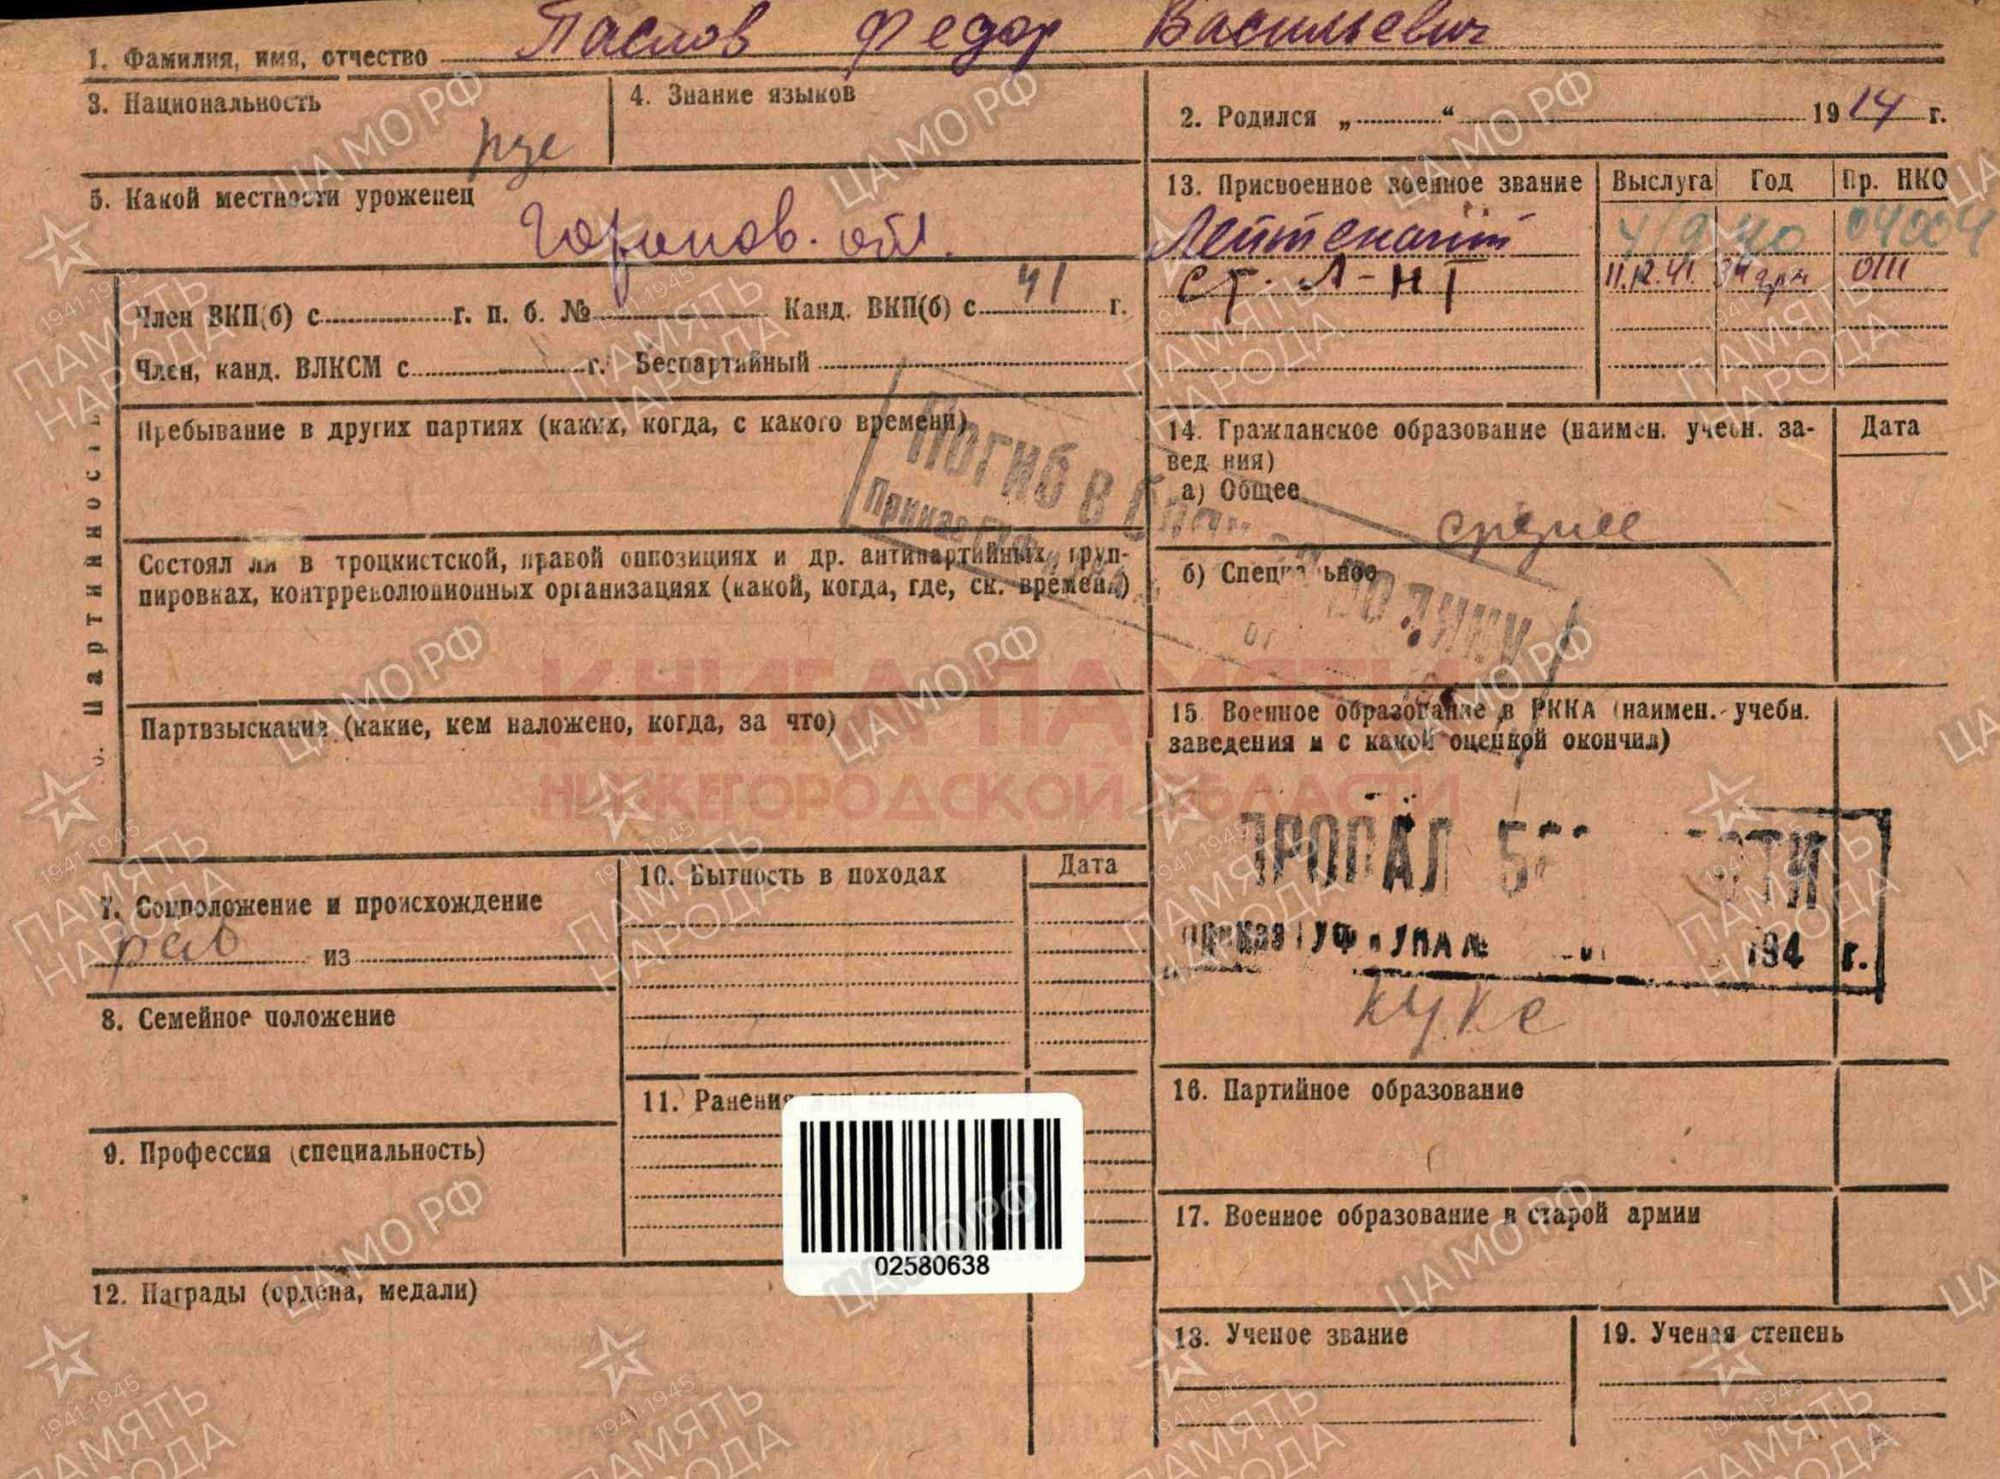 1. Фамилия, имя, отчество Паслов Федор Васильевич
3. Национальность рус
4. Знание языков
2. Родился „ “ 1914 г.
5. Какой местности уроженец
Горьков. обл.
13. Присвоенное военное звание Выслуга Год Пр. НКО
Лейтенант 40 04004
ст. л-нт 11.12.41. 0111
6. Партийность
Член ВКП(б) с г. п. б. № Канд. ВКП(б) с 41 г.
Член, канд. ВЛКСМ с г. Беспартийный
Пребывание в других партиях (каких, когда, с какого времени)
Состоял ли в троцкистской, правой оппозициях и др. антипартийных груп-
пировках, контрреволюционных организациях (какой, когда, где, ск. времени)
Партвзыскания (какие, кем наложено, когда, за что)
14. Гражданское образование (наимен. учебн. за-
ведения) Дата
а) Общее
среднее
б) Специальное
Погиб в
Приказ
от
15. Военное образование в РККА (наимен. учебн.
заведения и с какой оценкой окончил)
ПРОПАЛ
Приказ ГУФ и УПА № 194 г.
КУКС
7. Соцположение и происхождение
раб из
8. Семейное положение
9. Профессия (специальность)
10. Бытность в походах Дата
11. Ранения
02580638
12. Награды (ордена, медали)
16. Партийное образование
17. Военное образование в старой армии
18. Ученое звание
19. Ученая степень
КНИГА ПАМЯТИ
НИЖЕГОРОДСКОЙ ОБЛАСТИ
ЦА МО РФ
1941-1945
ПАМЯТЬ
НАРОДА